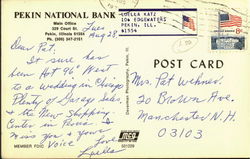 PEKIN NATIONAL BANK
Main Office
329 Court St.
Pekin, Illinois 61554
Ph. (309) 347-3161
LUELLA KATZ
109 EDGEWATERS
PEKIN, ILL.
61554
Tues
Aug 28
Dear Pat,
It sure has
been Hot 96° Went
to a wedding in Chicago
Plenty of Garage Sales
& the New Shopping
Center in Peoria
Miss you & your
Voice
Love
Luella
POST CARD
Mrs. Pat Wehner
20 Brown Ave.
Manchester N.H.
03103
MEMBER FDIC